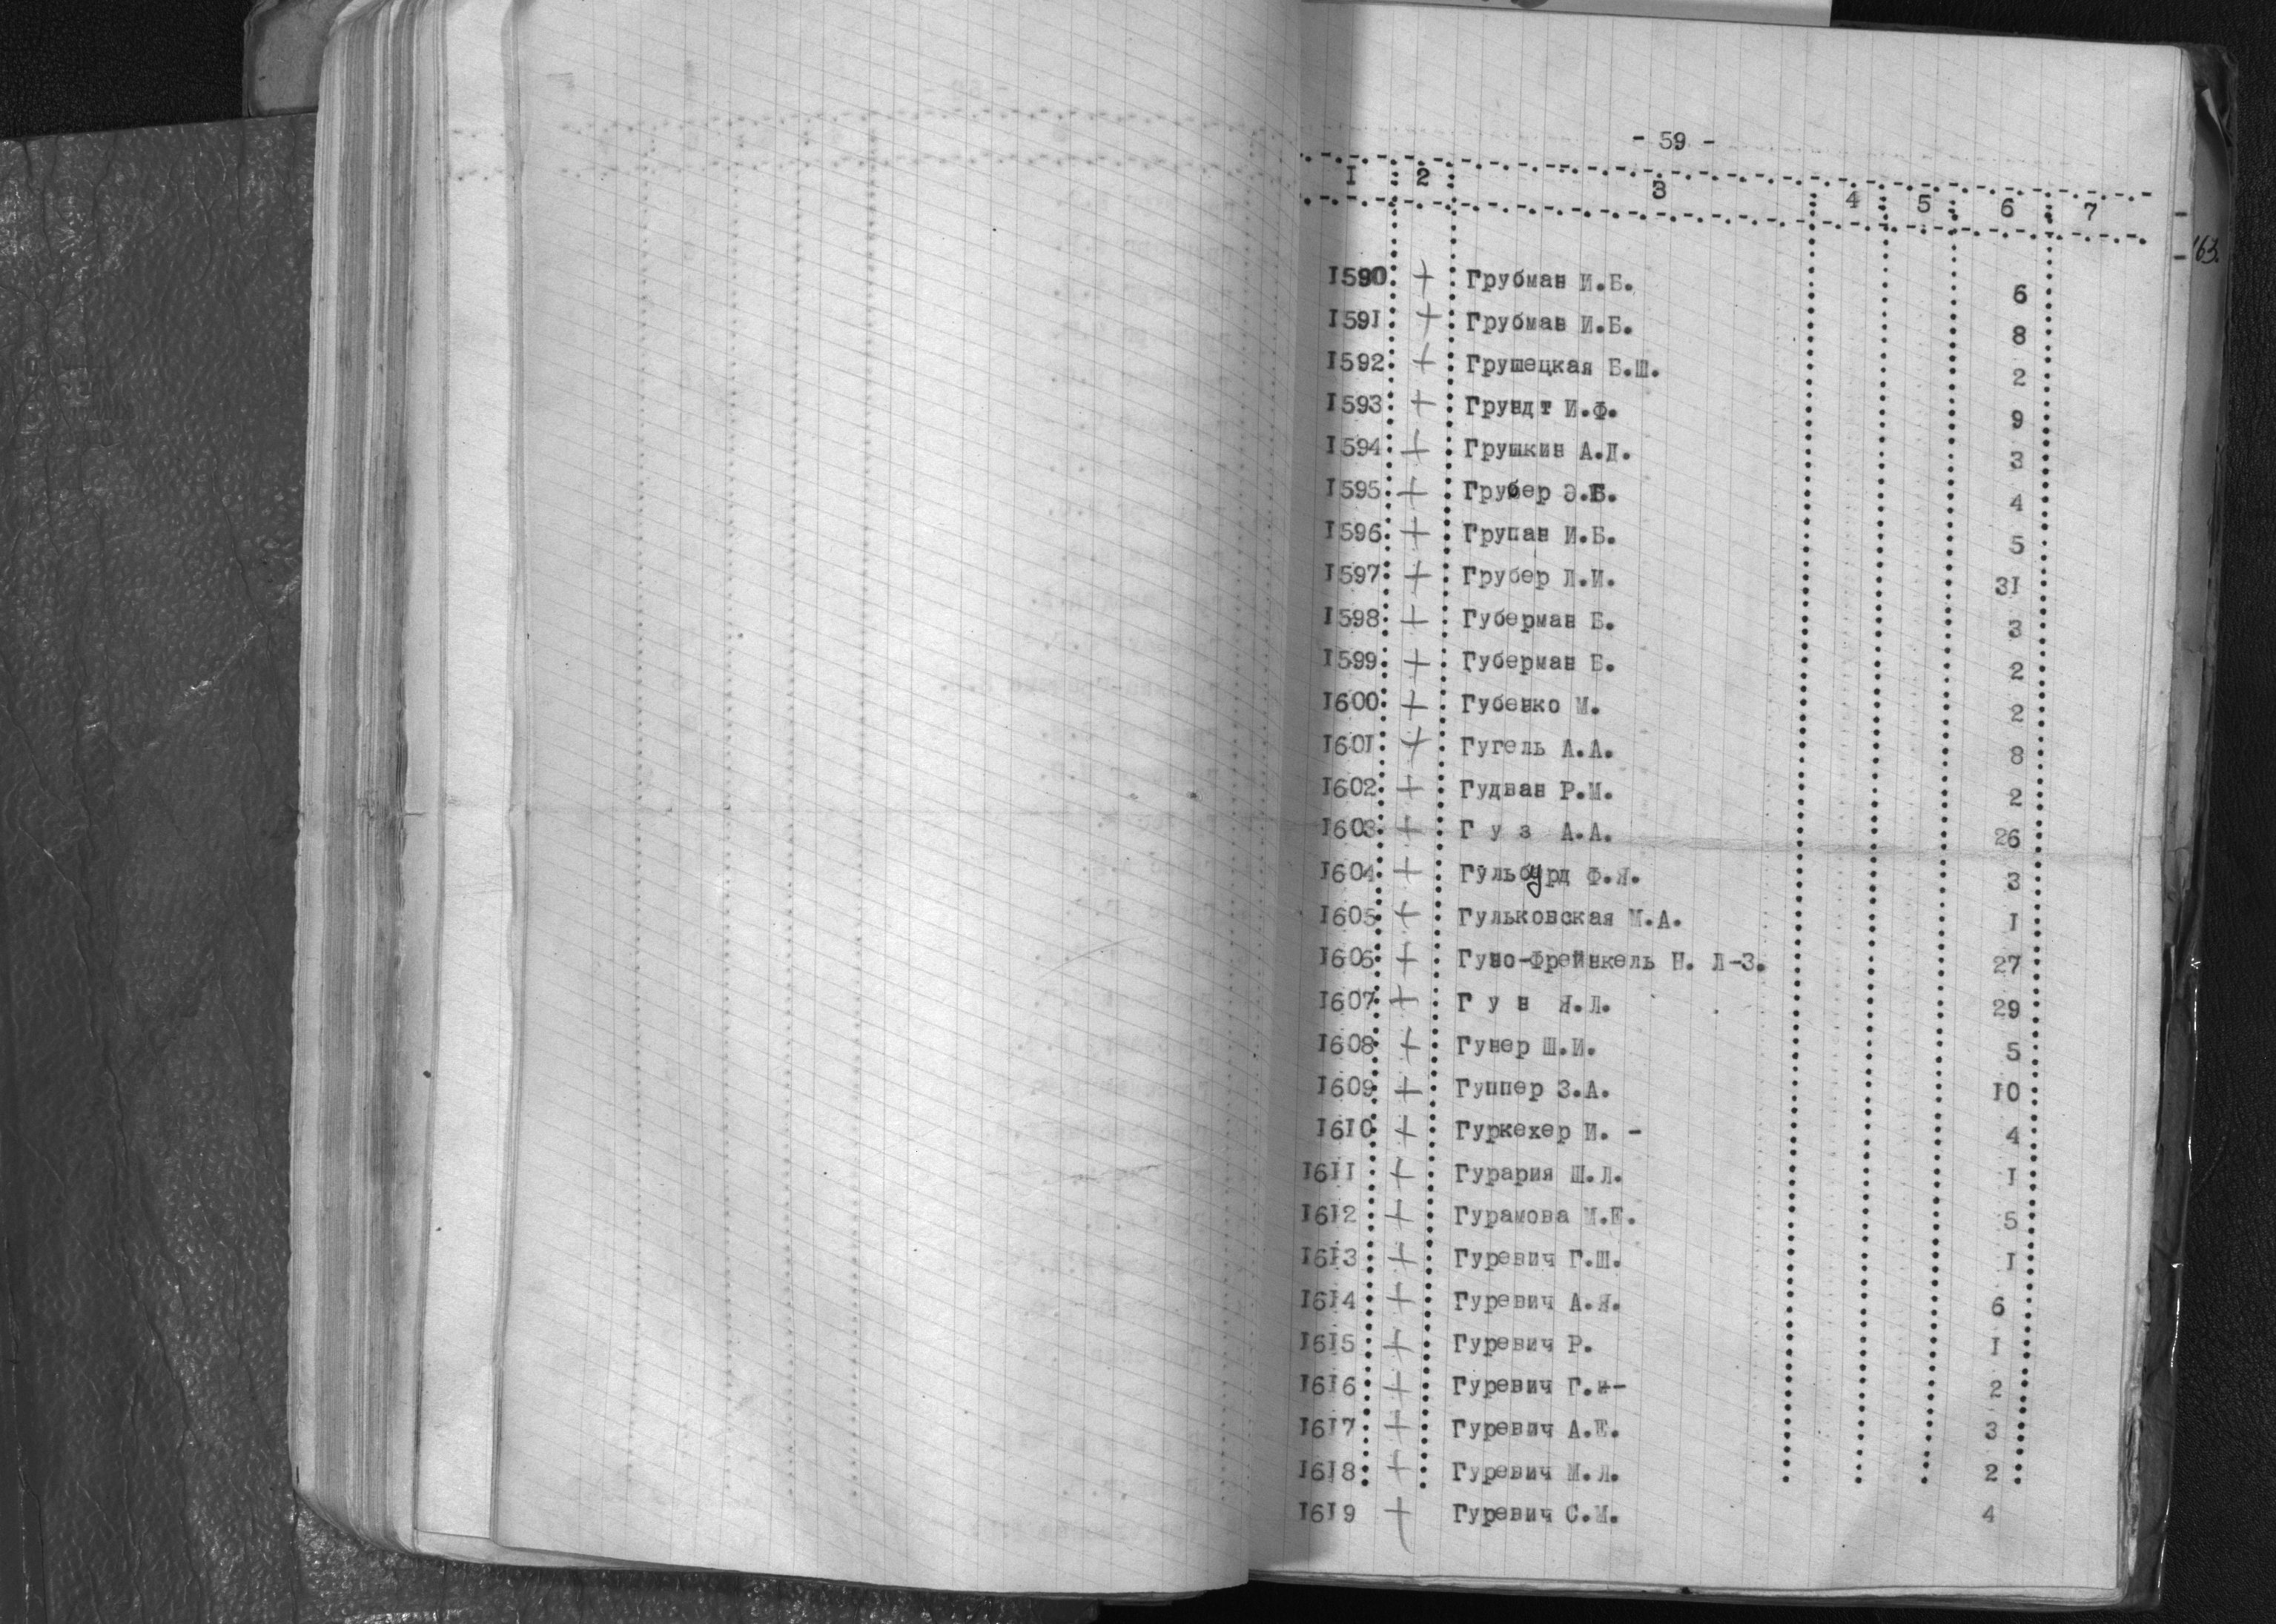 - 59 -
I : 2 : 3 : 4 : 5 : 6 : 7
163.
I590 + Грубман И.Б. 6
I59I + Грубман И.Б. 8
I592 + Грушецкая Б.Ш. 2
I593 + Грундт И.Ф. 9
I594 + Грушкин А.Д. 3
I595 + Грубер Э.Б. 4
I596 + Групан И.Б. 5
I597 + Грубер Л.И. 3I
I598 + Губерман Б. 3
I599 + Губерман Б. 2
I600 + Губенко М. 2
I60I + Гугель А.А. 8
I602 + Гудван Р.М. 2
I603 + Г у з А.А. 26
I604 + Гульбурд Ф.Я. 3
I605 + Гульковская М.А. I
I606 + Гуно-Фрейнкель Н. Л-З. 27
I607 + Г у н Я.Л. 29
I608 + Гунер Ш.И. 5
I609 + Гуппер З.А. I0
I6I0 + Гуркехер И. - 4
I6II + Гурария Ш.Л. I
I6I2 + Гурамова М.Е. 5
I6I3 + Гуревич Г.Ш. I
I6I4 + Гуревич А.Я. 6
I6I5 + Гуревич Р. I
I6I6 + Гуревич Г. 2
I6I7 + Гуревич А.Е. 3
I6I8 + Гуревич М.Л. 2
I6I9 + Гуревич С.М. 4